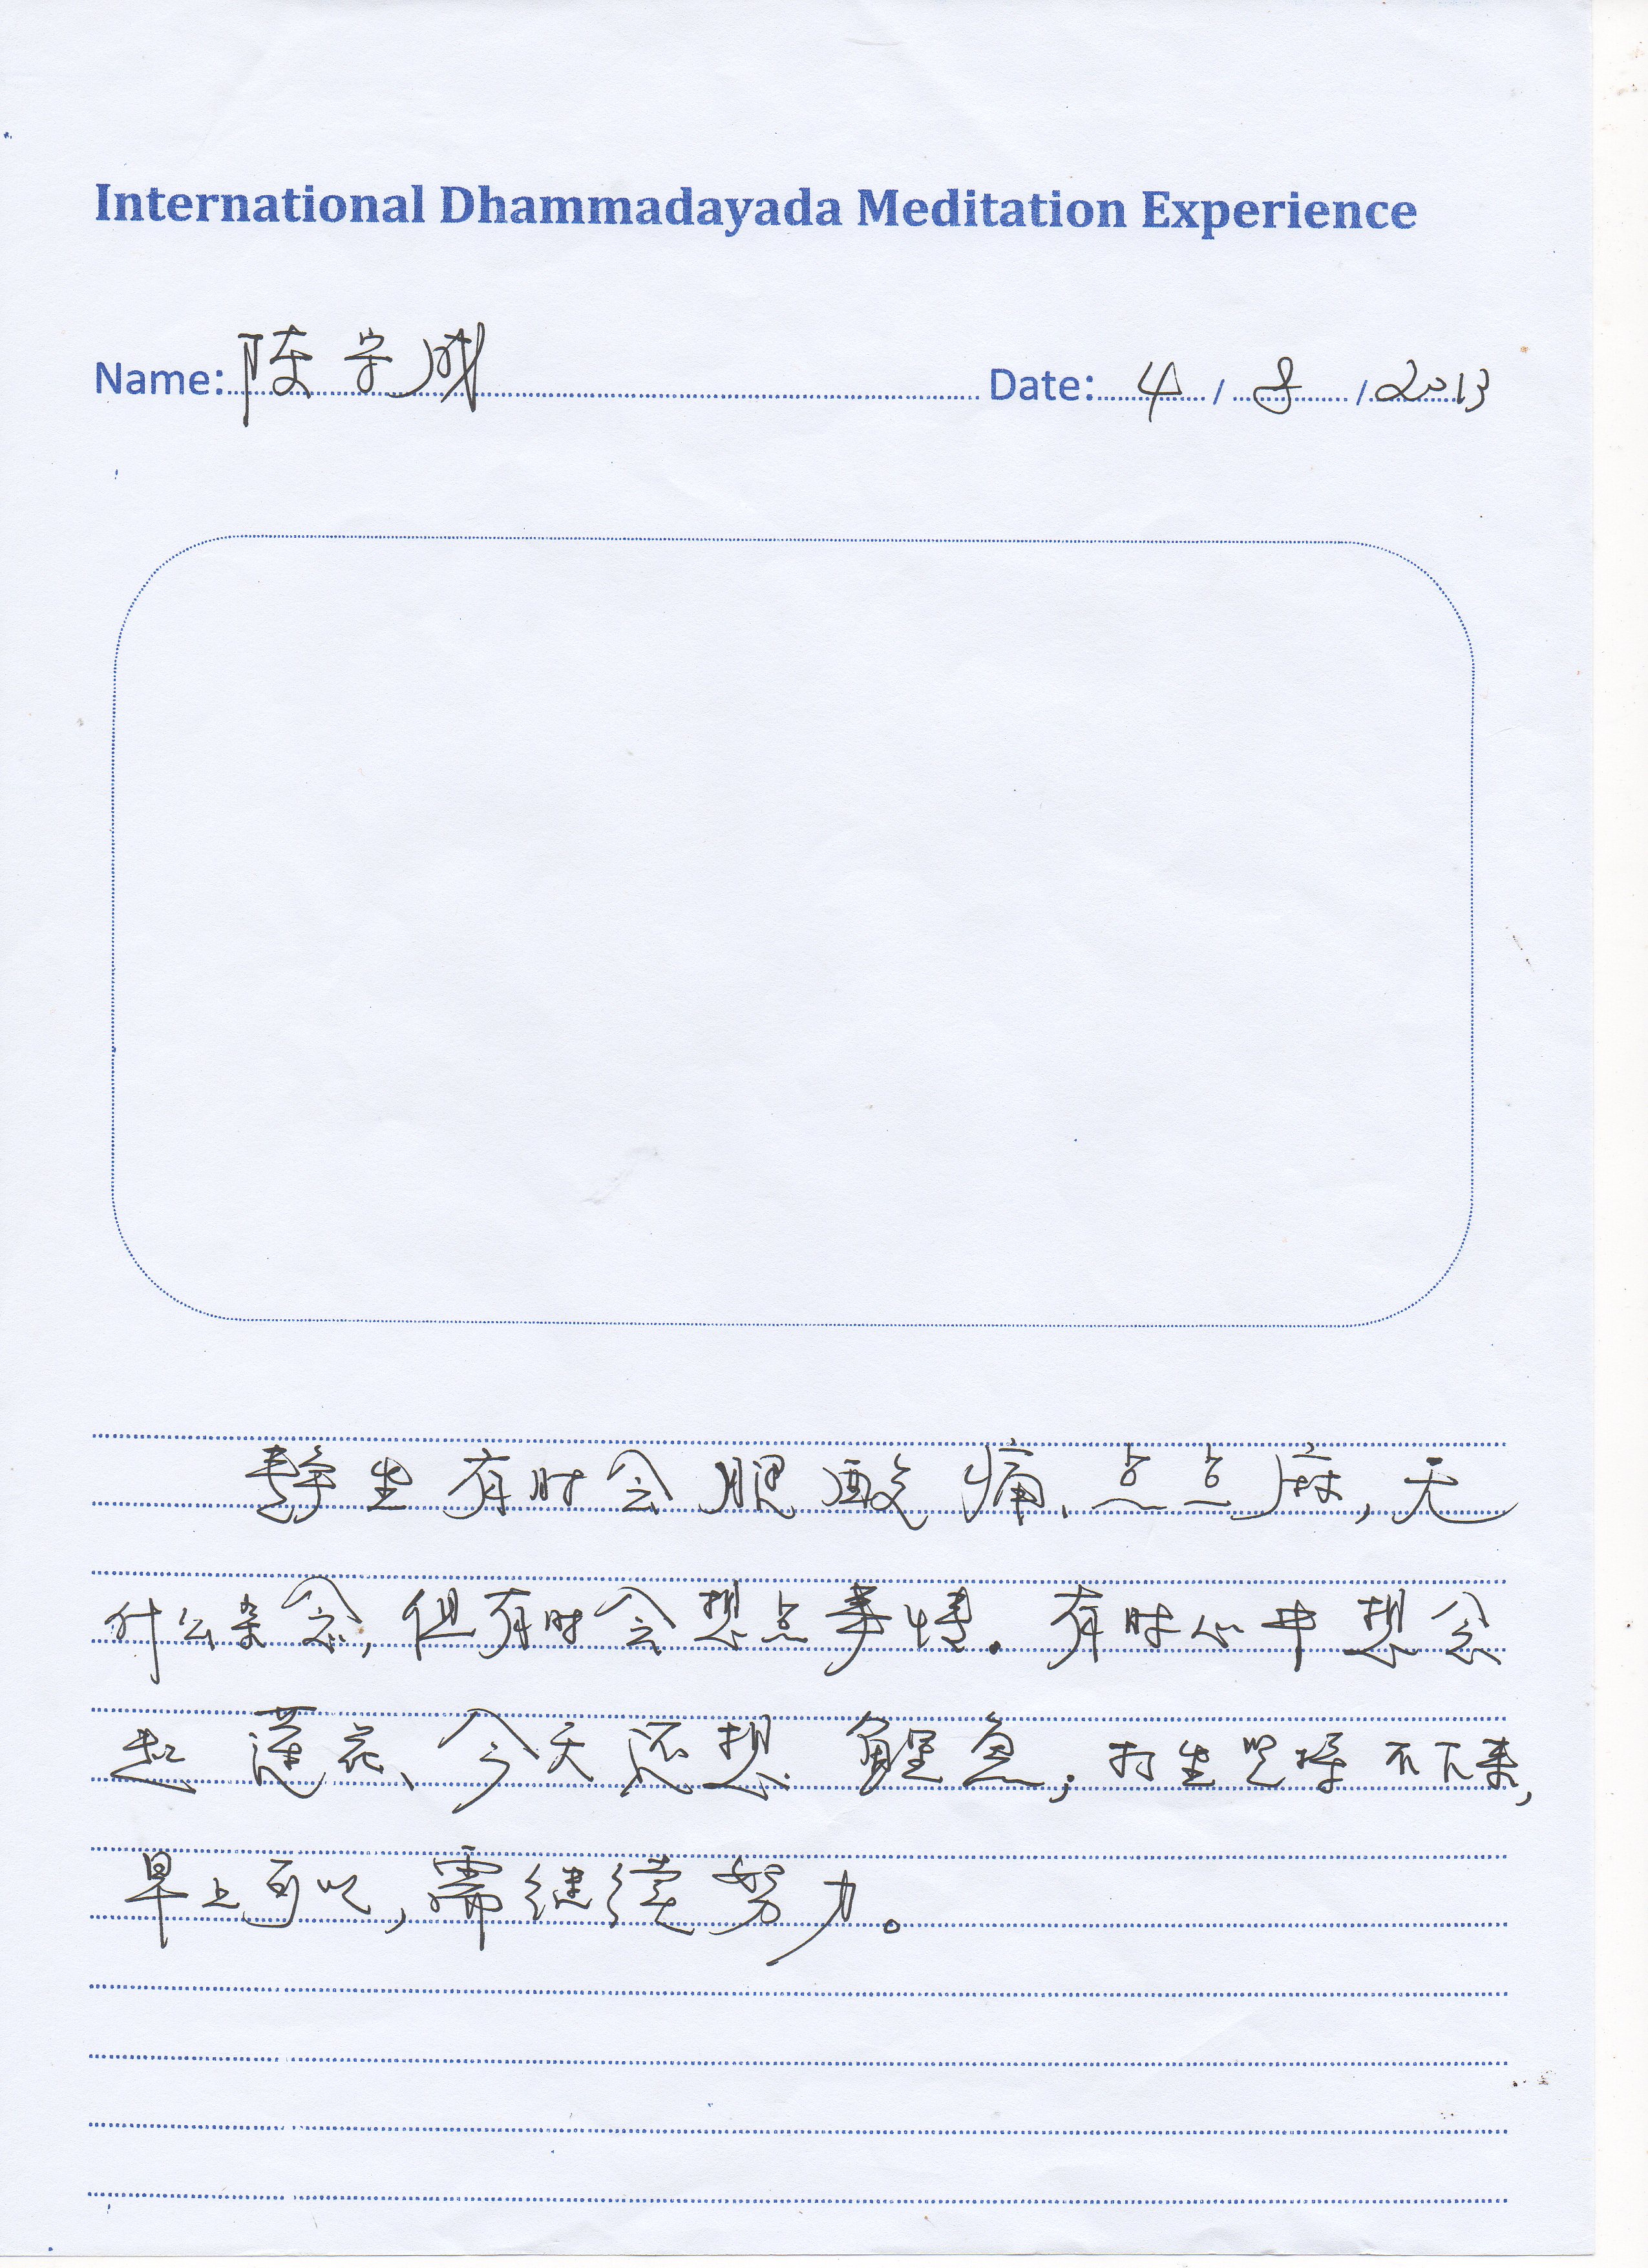 International Dhammadayada Meditation Experience
Name: 陈字成 Date: 4 / 8 / 2013
静坐有时会腿酸痛、点点麻,无
什么杂念,但有时会想点事情。有时心中想念
起莲花、今天还想鲤鱼;打坐觉 不下来,
早上可以,需继续努力。